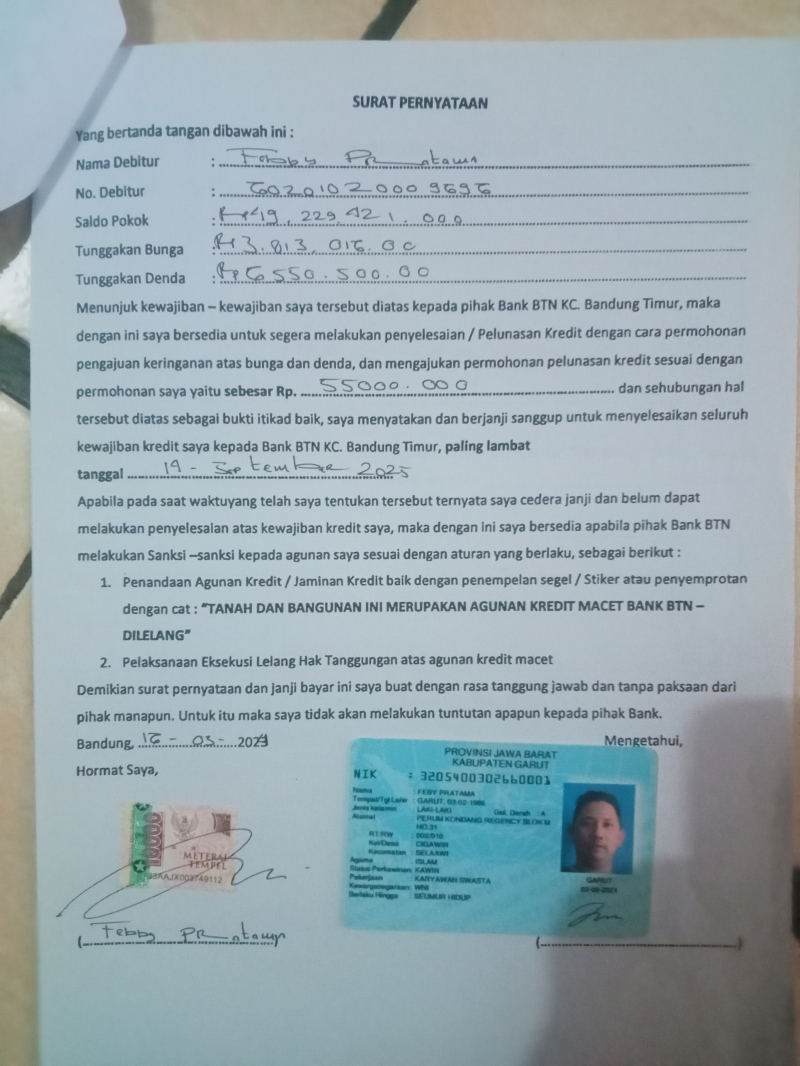 SURAT PERNYATAAN
Yang bertanda tangan dibawah ini :
Nama Debitur : Febby PRatama
No. Debitur :
Saldo Pokok : 229.421.000
Tunggakan Bunga :
Tunggakan Denda : 550.500.00
Menunjuk kewajiban – kewajiban saya tersebut diatas kepada pihak Bank BTN KC. Bandung Timur, maka
dengan ini saya bersedia untuk segera melakukan penyelesaian / Pelunasan Kredit dengan cara permohonan
pengajuan keringanan atas bunga dan denda, dan mengajukan permohonan pelunasan kredit sesuai dengan
permohonan saya yaitu sebesar Rp. 55000.000 dan sehubungan hal
tersebut diatas sebagai bukti itikad baik, saya menyatakan dan berjanji sanggup untuk menyelesaikan seluruh
kewajiban kredit saya kepada Bank BTN KC. Bandung Timur, paling lambat
tanggal 19 - September 2025
Apabila pada saat waktuyang telah saya tentukan tersebut ternyata saya cedera janji dan belum dapat
melakukan penyelesaian atas kewajiban kredit saya, maka dengan ini saya bersedia apabila pihak Bank BTN
melakukan Sanksi –sanksi kepada agunan saya sesuai dengan aturan yang berlaku, sebagai berikut :
1. Penandaan Agunan Kredit / Jaminan Kredit baik dengan penempelan segel / Stiker atau penyemprotan
dengan cat : “TANAH DAN BANGUNAN INI MERUPAKAN AGUNAN KREDIT MACET BANK BTN –
DILELANG”
2. Pelaksanaan Eksekusi Lelang Hak Tanggungan atas agunan kredit macet
Demikian surat pernyataan dan janji bayar ini saya buat dengan rasa tanggung jawab dan tanpa paksaan dari
pihak manapun. Untuk itu maka saya tidak akan melakukan tuntutan apapun kepada pihak Bank.
Bandung,
Mengetahui,
Hormat Saya,
PROVINSI JAWA BARAT
KABUPATEN GARUT
NIK : 3205400302660001
Nama : FEBY PRATAMA
Tempat/Tgl Lahir : GARUT, 03-02-1986
Jenis kelamin : LAKI-LAKI Gol. Darah : A
Alamat : PERUM KONDANG REGENCY BLOK M
NO.31
RT/RW
Kel/Desa : CIGAWIR
Kecamatan : SELAAWI
Agama : ISLAM
Status Perkawinan : KAWIN
Pekerjaan : KARYAWAN SWASTA
Kewarganegaraan : WNI
Berlaku Hingga : SEUMUR HIDUP
GARUT
METERAI
TEMPEL
(Febby PRatama)